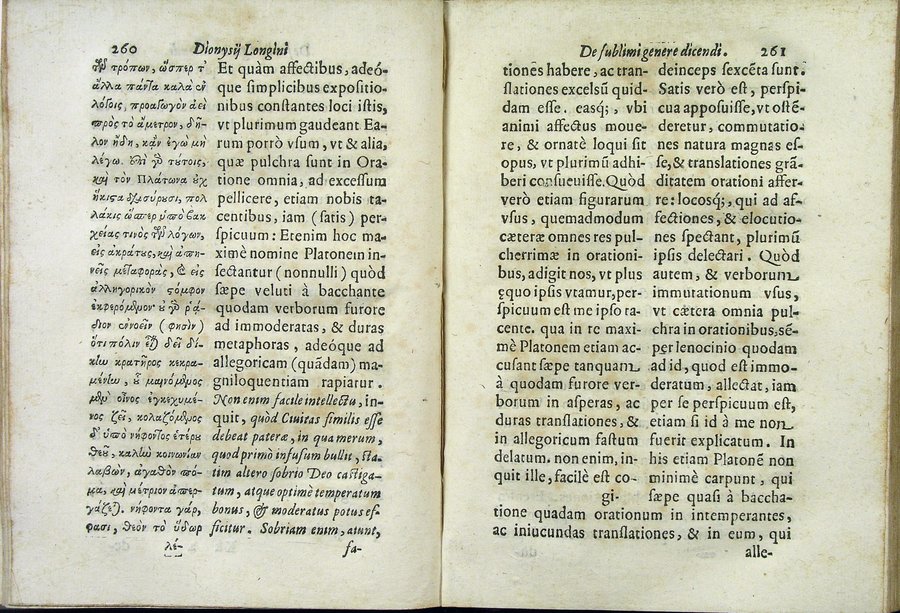 260 Dionysij Longini
τῶν τρόπων, ὥσπερ τ̓
ἄλλα πάντα καλὰ ἐν
λόγοις, προαγωγὸν ἀεὶ
πρὸς τὸ ἄμετρον, δῆ-
λον ἤδη, κἂν ἐγὼ μὴ
λέγω. ἐπὶ γὰρ τούτοις,
καὶ τὸν Πλάτωνα οὐχ
ἥκιστα διασύρουσι, πολ
λάκις ὥσπερ ὑπὸ βακ
χείας τινὸς τῶν λόγων,
εἰς ἀκράτους, καὶ ἀπη-
νεῖς μεταφορὰς, καὶ εἰς
ἀλληγορικὸν στόμφον
ἐκφερόμενον· οὐ γὰρ ῥᾴ-
διον ἐννοεῖν (φησὶν)
ὅτι πόλιν εἶναι δεῖ δί-
κην κρατῆρος κεκρα-
μένην, οὗ μαινόμενος
μὲν οἶνος ἐγκεχυμέ-
νος ζεῖ, κολαζόμενος
δὲ ὑπὸ νήφοντος ἑτέρου
θεοῦ, καλὴν κοινωνίαν
λαβὼν, ἀγαθὸν πό-
μα, καὶ μέτριον ἀπερ-
γάζεται. νήφοντα γάρ,
φασι, θεὸν τὸ ὕδωρ
λέ-
Et quàm affectibus, adeó-
que simplicibus expositio-
nibus constantes loci istis,
vt plurimum gaudeant Ea-
rum porrò vsum, vt & alia,
quæ pulchra sunt in Ora-
tione omnia, ad excessum
pellicere, etiam nobis ta-
centibus, iam (satis) per-
spicuum: Etenim hoc ma-
ximè nomine Platonem in-
sectantur (nonnulli) quòd
sæpe veluti à bacchante
quodam verborum furore
ad immoderatas, & duras
metaphoras, adeóque ad
allegoricam (quãdam) ma-
gniloquentiam rapiatur.
Non enim facile intellectu, in-
quit, quòd Ciuitas similis esse
debeat pateræ, in qua merum,
quod primò infusum bullit, sta-
tim altero sobrio Deo castiga-
tum, atque optimè temperatum
bonus, & moderatus potus ef-
ficitur. Sobriam enim, aiunt,
sa-
De sublimi genere dicendi. 261
tiones habere, ac tran-
slationes excelsũ quid-
dam esse. easq;, vbi
animi affectus moue-
re, & ornatè loqui sit
opus, vt plurimũ adhi-
beri consueuisse. Quòd
verò etiam figurarum
vsus, quemadmodum
cæteræ omnes res pul-
cherrimæ in orationi-
bus, adigit nos, vt plus
ęquo ipsis vtamur, per-
spicuum est me ipso ta-
cente. qua in re maxi-
mè Platonem etiam ac-
cusant sæpe tanquam
à quodam furore ver-
borum in asperas, ac
duras translationes, &
in allegoricum fastum
delatum. non enim, in-
quit ille, facilè est co-
gi-
deinceps sexcẽta sunt.
Satis verò est, perspi
cua apposuisse, vt ostẽ-
deretur, commutatio-
nes natura magnas es-
se, & translationes grã-
ditatem orationi affer-
re: locosq;, qui ad af-
fectiones, & elocutio-
nes spectant, plurimũ
ipsis delectari. Quòd
autem, & verborum
immutationum vsus,
vt cætera omnia pul-
chra in orationibus, sẽ-
per lenocinio quodam
ad id, quod est immo-
deratum, allectat, iam
per se perspicuum est,
etiam si id à me non
fuerit explicatum. In
his etiam Platonẽ non
minimè carpunt, qui
sæpe quasi à baccha-
tione quadam orationum in intemperantes,
ac iniucundas translationes, & in eum, qui
alle-